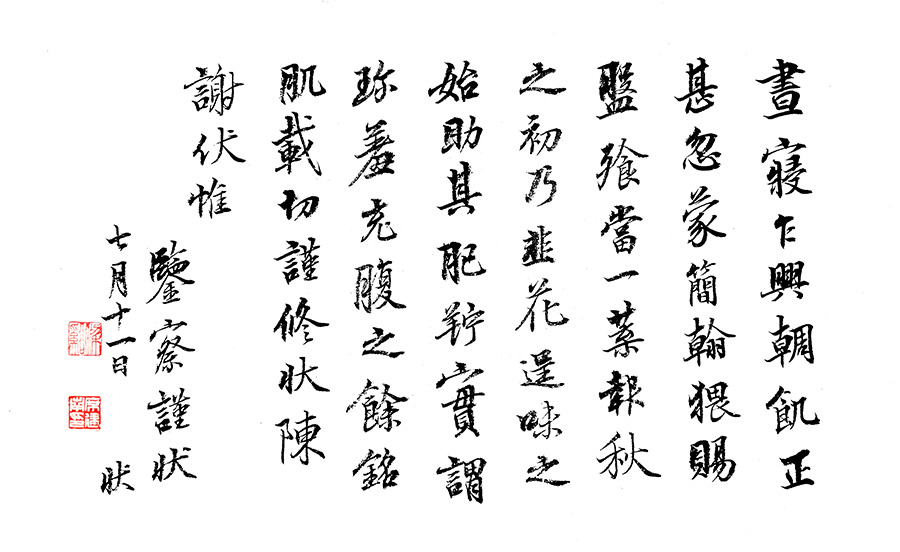 晝寢乍興輖飢正
甚忽蒙簡翰猥賜
盤飧當一葉報秋
之初乃韭花逞味之
始助其肥羜實謂
珍羞充腹之餘銘
肌載切謹修狀陳
謝伏惟
鑒察謹狀
七月十一日 狀